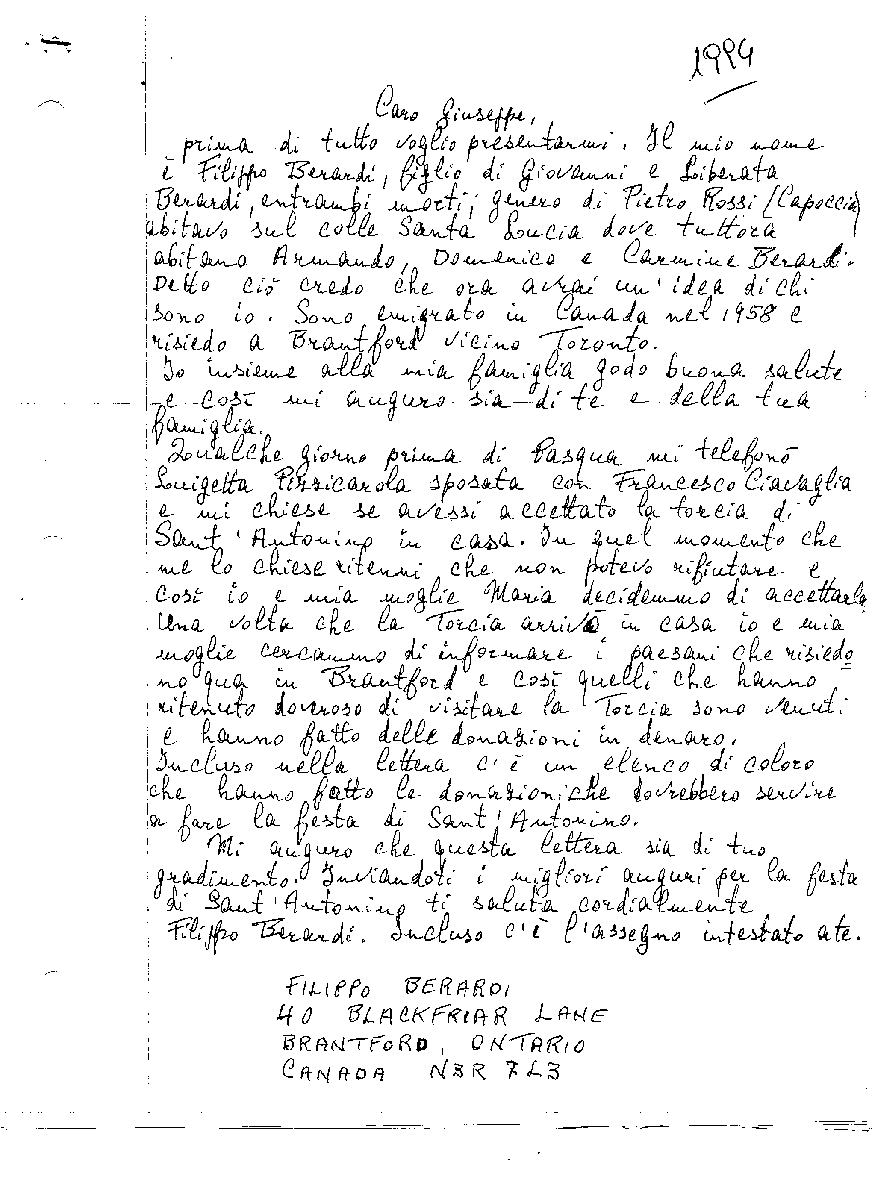 1994
Caro Giuseppe,
prima di tutto voglio presentarmi. Il mio nome
è Filippo Berardi, figlio di Giovanni e Liberata
Berardi, entrambi morti; genero di Pietro Rossi (Capoccia)
abitavo sul colle Santa Loucia dove tuttora
abitano Armando, Domenico e Carmine Berardi.
Detto ciò credo che ora avrai un'idea di chi
sono io. Sono emigrato in Canada nel 1958 e
risiedo a Brantford vicino Toronto.
Io insieme alla mia famiglia godo buona salute
e così mi auguro sia di te e della tua
famiglia.
Qualche giorno prima di Pasqua mi telefonò
Luigetta Pizzicarola sposata con Francesco Ciavaglia
e mi chiese se avessi accettato la torcia di
Sant'Antonino in casa. In quel momento che
me lo chiese ritenni che non potevo rifiutare e
così io e mia moglie Maria decidemmo di accettarla
Una volta che la Torcia arrivò in casa io e mia
moglie cercammo di informare i paesani che risiedo
no qua in Brantford e così quelli che hanno
ritenuto doveroso di visitare la Torcia sono venuti
e hanno fatto delle donazioni in denaro.
Incluso nella lettera c'è un elenco di coloro
che hanno fatto le donazioni che dovrebbero servire
a fare la festa di Sant'Antonino.
Mi auguro che questa lettera sia di tuo
gradimento. Inviandoti i migliori auguri per la festa
di Sant'Antonino ti saluta cordialmente
Filippo Berardi. Incluso c'è l'assegno intestato a te.
FILIPPO BERARDI
40 BLACKFRIAR LANE
BRANTFORD, ONTARIO
CANADA N3R 7L3